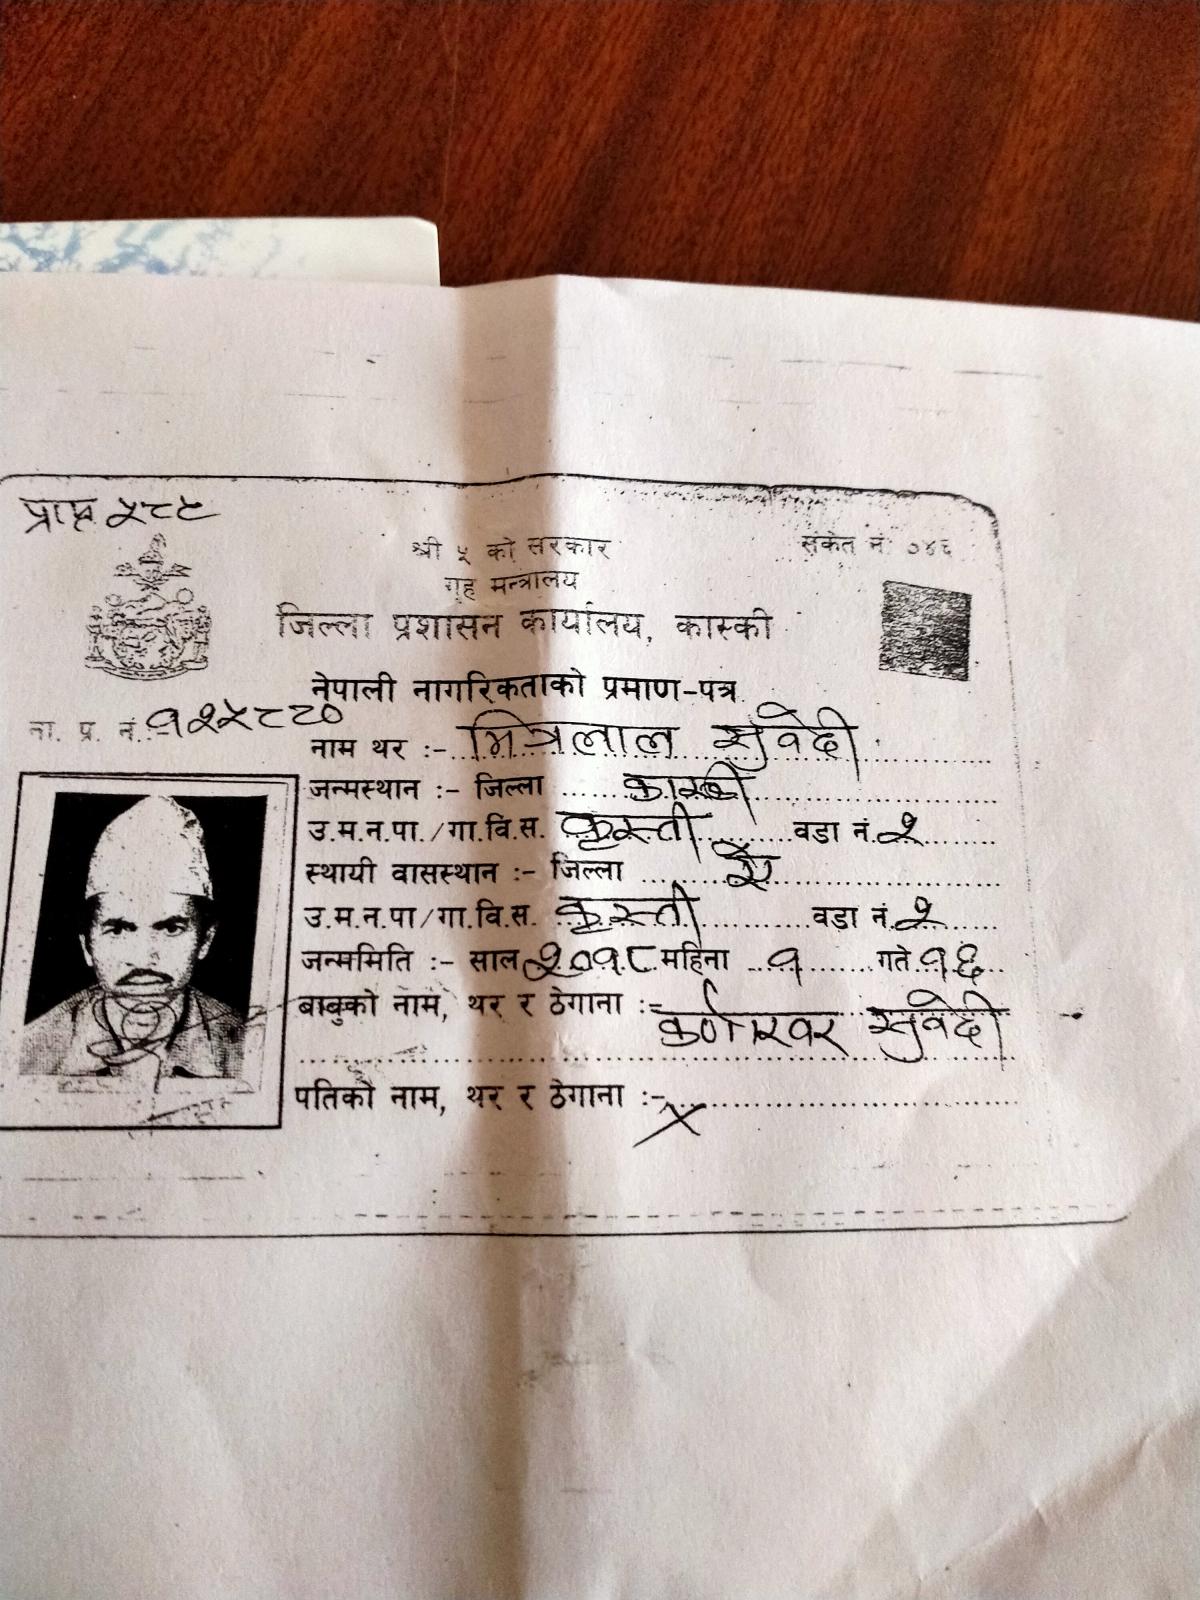 प्राप्त ५८९
श्री ५ को सरकार
संकेत नं ०४६
गृह मन्त्रालय
जिल्ला प्रशासन कार्यालय, कास्की
नेपाली नागरिकताको प्रमाण-पत्र
ना. प्र. नं. १२५८२०
नाम थर :- मित्रलाल सुवेदी
जन्मस्थान :- जिल्ला कास्की
उ.म.न.पा./गा.वि.स. कृस्ती वडा नं. २
स्थायी वासस्थान :- जिल्ला ऐऐ
उ.म.न.पा/गा.वि.स. कृस्ती वडा नं. २
जन्ममिति :- साल २०१८ महिना १ गते १६
बाबुको नाम, थर र ठेगाना :- सुवेदी
पतिको नाम, थर र ठेगाना :- X